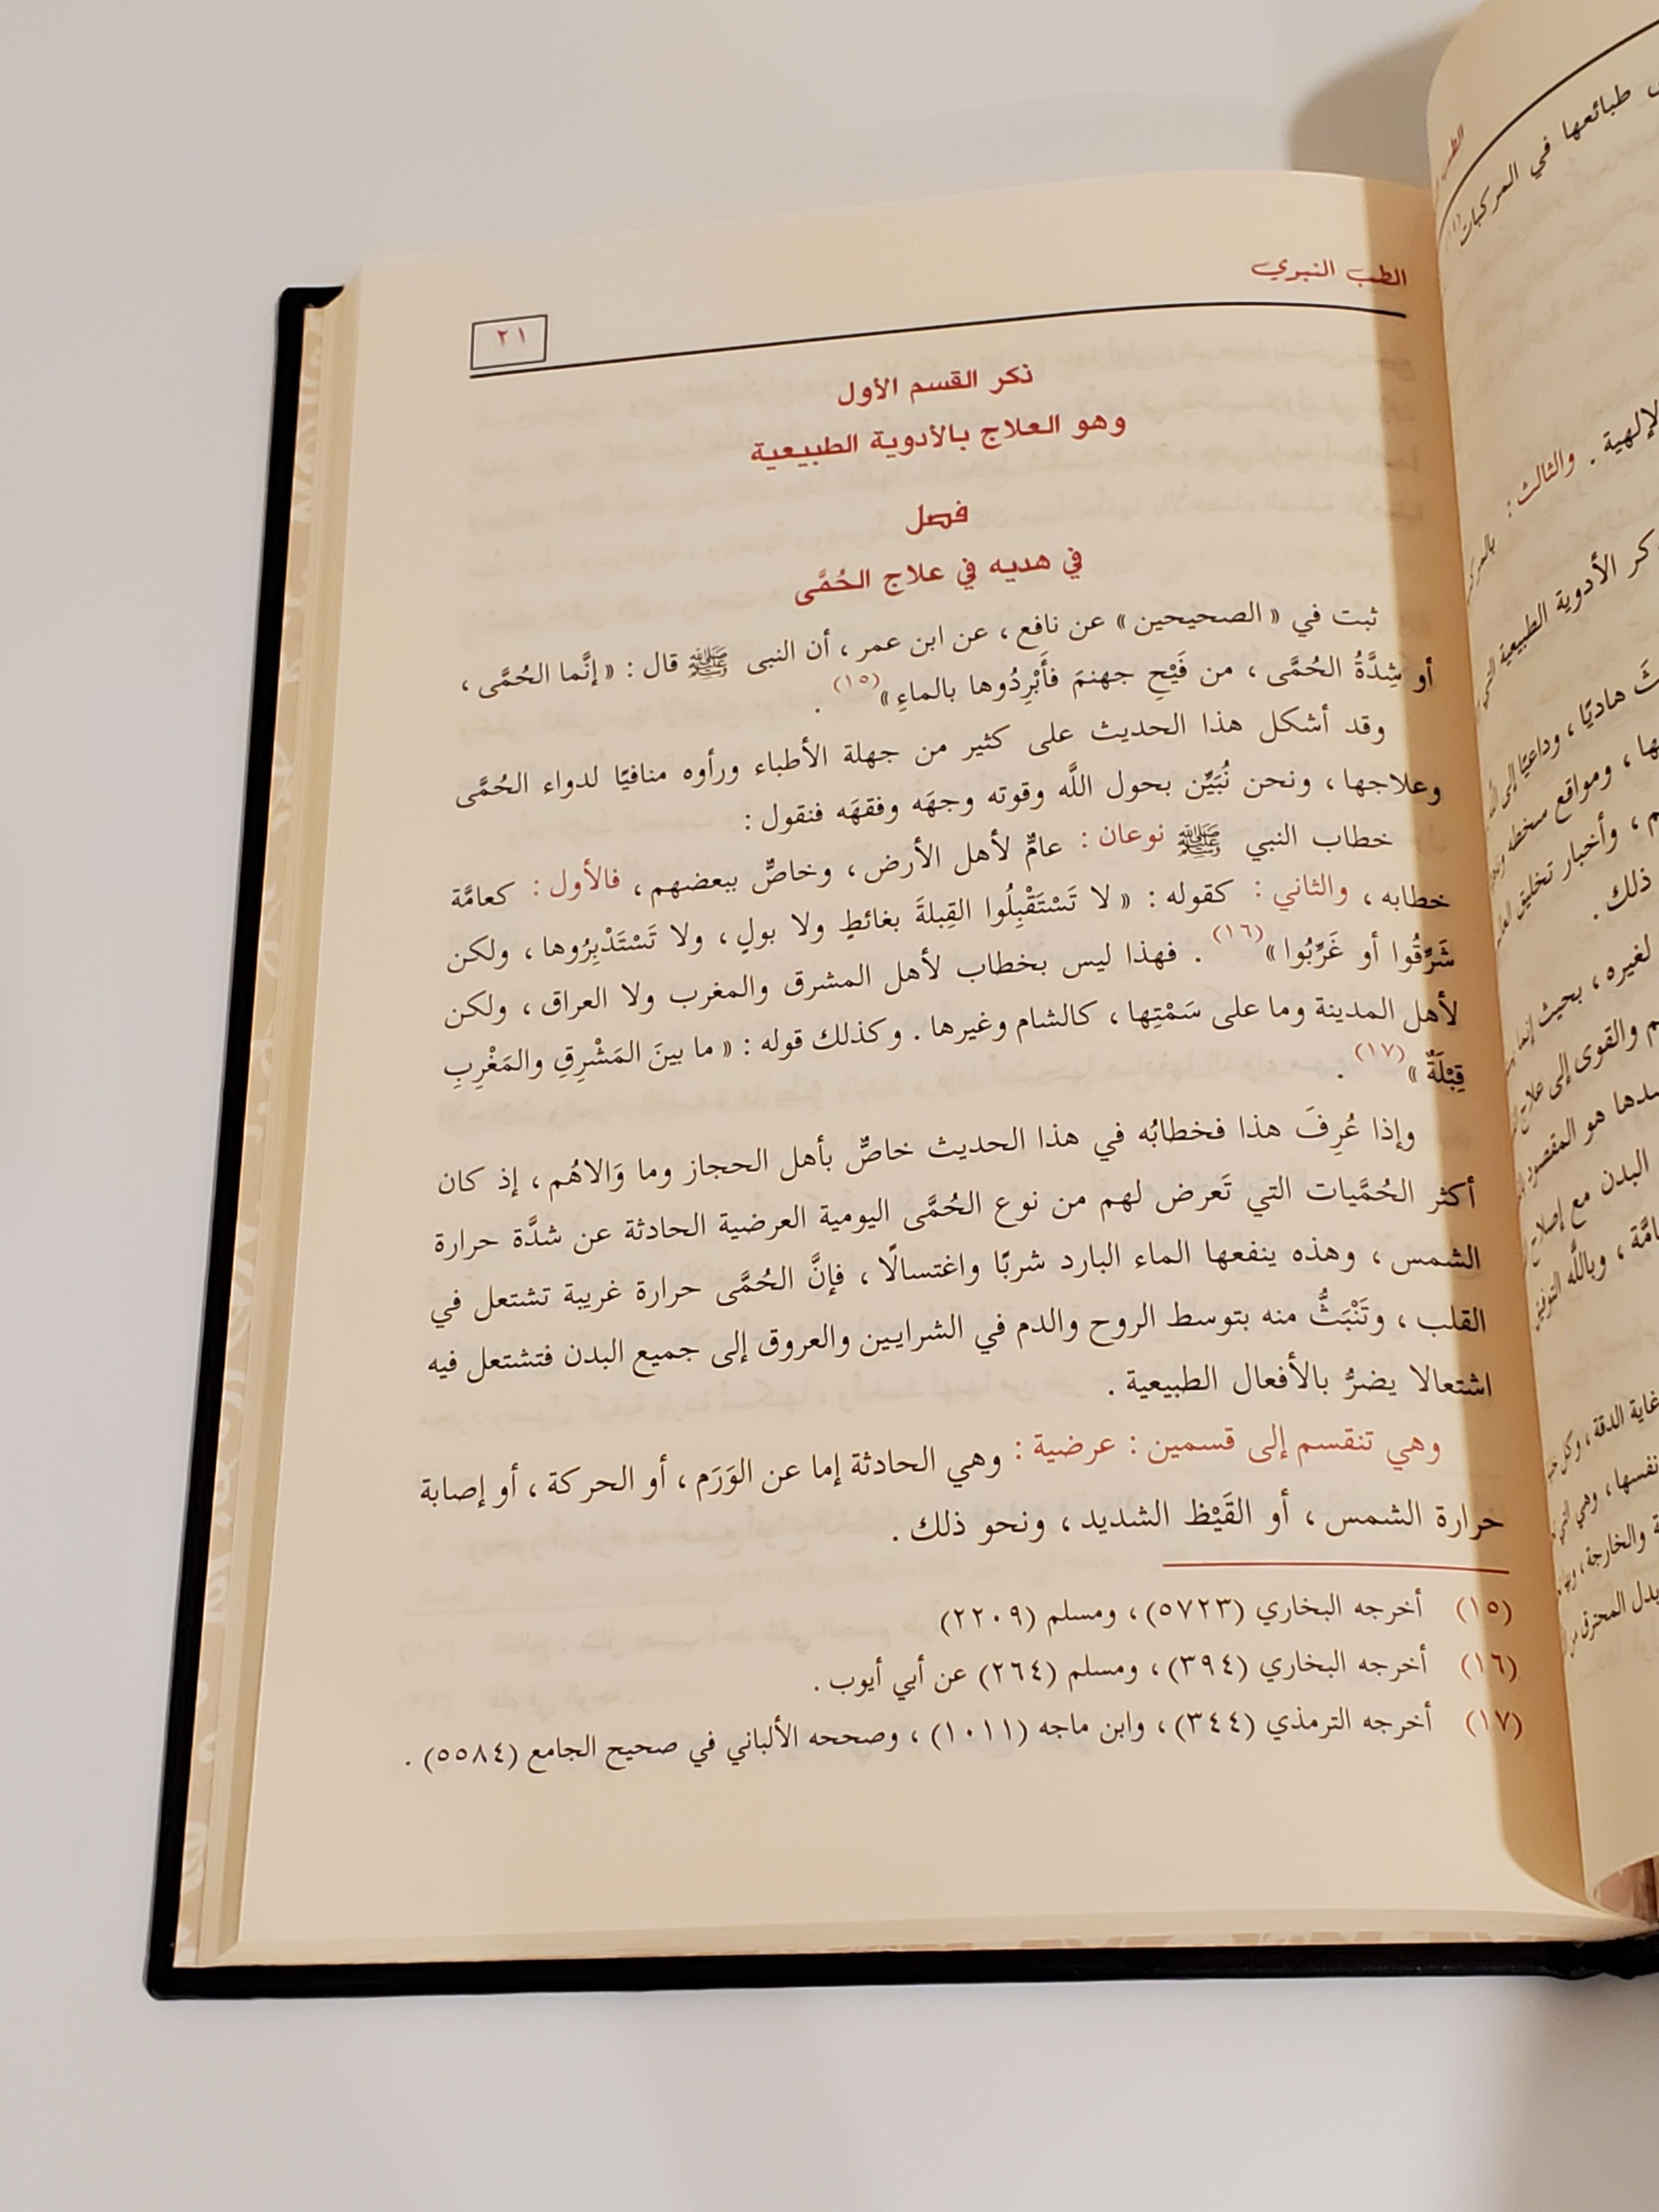 الطب النبوي
٢١
ذكر القسم الأول
وهو العلاج بالأدوية الطبيعية
فصل
في هديه في علاج الحُمَّى
ثبت في « الصحيحين » عن نافع ، عن ابن عمر ، أن النبى ﷺ قال : « إنَّما الحُمَّى ،
أو شِدَّةُ الحُمَّى ، من فَيْحِ جهنمَ فأَبْرِدُوها بالماءِ »(١٥) .
وقد أشكل هذا الحديث على كثير من جهلة الأطباء ورأوه منافيًا لدواء الحُمَّى
وعلاجها ، ونحن نُبَيِّن بحول اللَّه وقوته وجهَه وفقهَه فنقول :
خطاب النبي ﷺ نوعان : عامٌّ لأهل الأرض ، وخاصٌّ ببعضهم ، فالأول : كعامَّة
خطابه ، والثاني : كقوله : « لا تَسْتَقْبِلُوا القِبلةَ بغائطٍ ولا بولٍ ، ولا تَسْتَدْبِرُوها ، ولكن
شَرِّقُوا أو غَرِّبُوا »(١٦) . فهذا ليس بخطاب لأهل المشرق والمغرب ولا العراق ، ولكن
لأهل المدينة وما على سَمْتِها ، كالشام وغيرها . وكذلك قوله : « ما بينَ المَشْرِقِ والمَغْرِبِ
قِبْلَةٌ »(١٧) .
وإذا عُرِفَ هذا فخطابُه في هذا الحديث خاصٌّ بأهل الحجاز وما وَالاهُم ، إذ كان
أكثر الحُمَّيات التي تَعرض لهم من نوع الحُمَّى اليومية العرضية الحادثة عن شدَّة حرارة
الشمس ، وهذه ينفعها الماء البارد شربًا واغتسالًا ، فإنَّ الحُمَّى حرارة غريبة تشتعل في
القلب ، وتَنْبَثُّ منه بتوسط الروح والدم في الشرايين والعروق إلى جميع البدن فتشتعل فيه
اشتعالا يضرُّ بالأفعال الطبيعية .
وهي تنقسم إلى قسمين : عرضية : وهي الحادثة إما عن الوَرَم ، أو الحركة ، أو إصابة
حرارة الشمس ، أو القَيْظ الشديد ، ونحو ذلك .
(١٥) أخرجه البخاري (٥٧٢٣) ، ومسلم (٢٢٠٩)
(١٦) أخرجه البخاري (٣٩٤) ، ومسلم (٢٦٤) عن أبي أيوب .
(١٧) أخرجه الترمذي (٣٤٤) ، وابن ماجه (١٠١١) ، وصححه الألباني في صحيح الجامع (٥٥٨٤) .
طبائعها في المركبات
الإلهية . والثالث :
الأدوية الطبيعية
هاديًا ، وداعيًا إلى
ومواقع سخطه
وأخبار تخليق
ذلك .
لغيره ، بحيث
والقوى إلى علاج
هو المقصود
البدن مع إصلاح
وباللَّه التوفيق
غاية الدقة ، وكل
نفسها ، وهي
والخارجة ،
بدل المحترق من